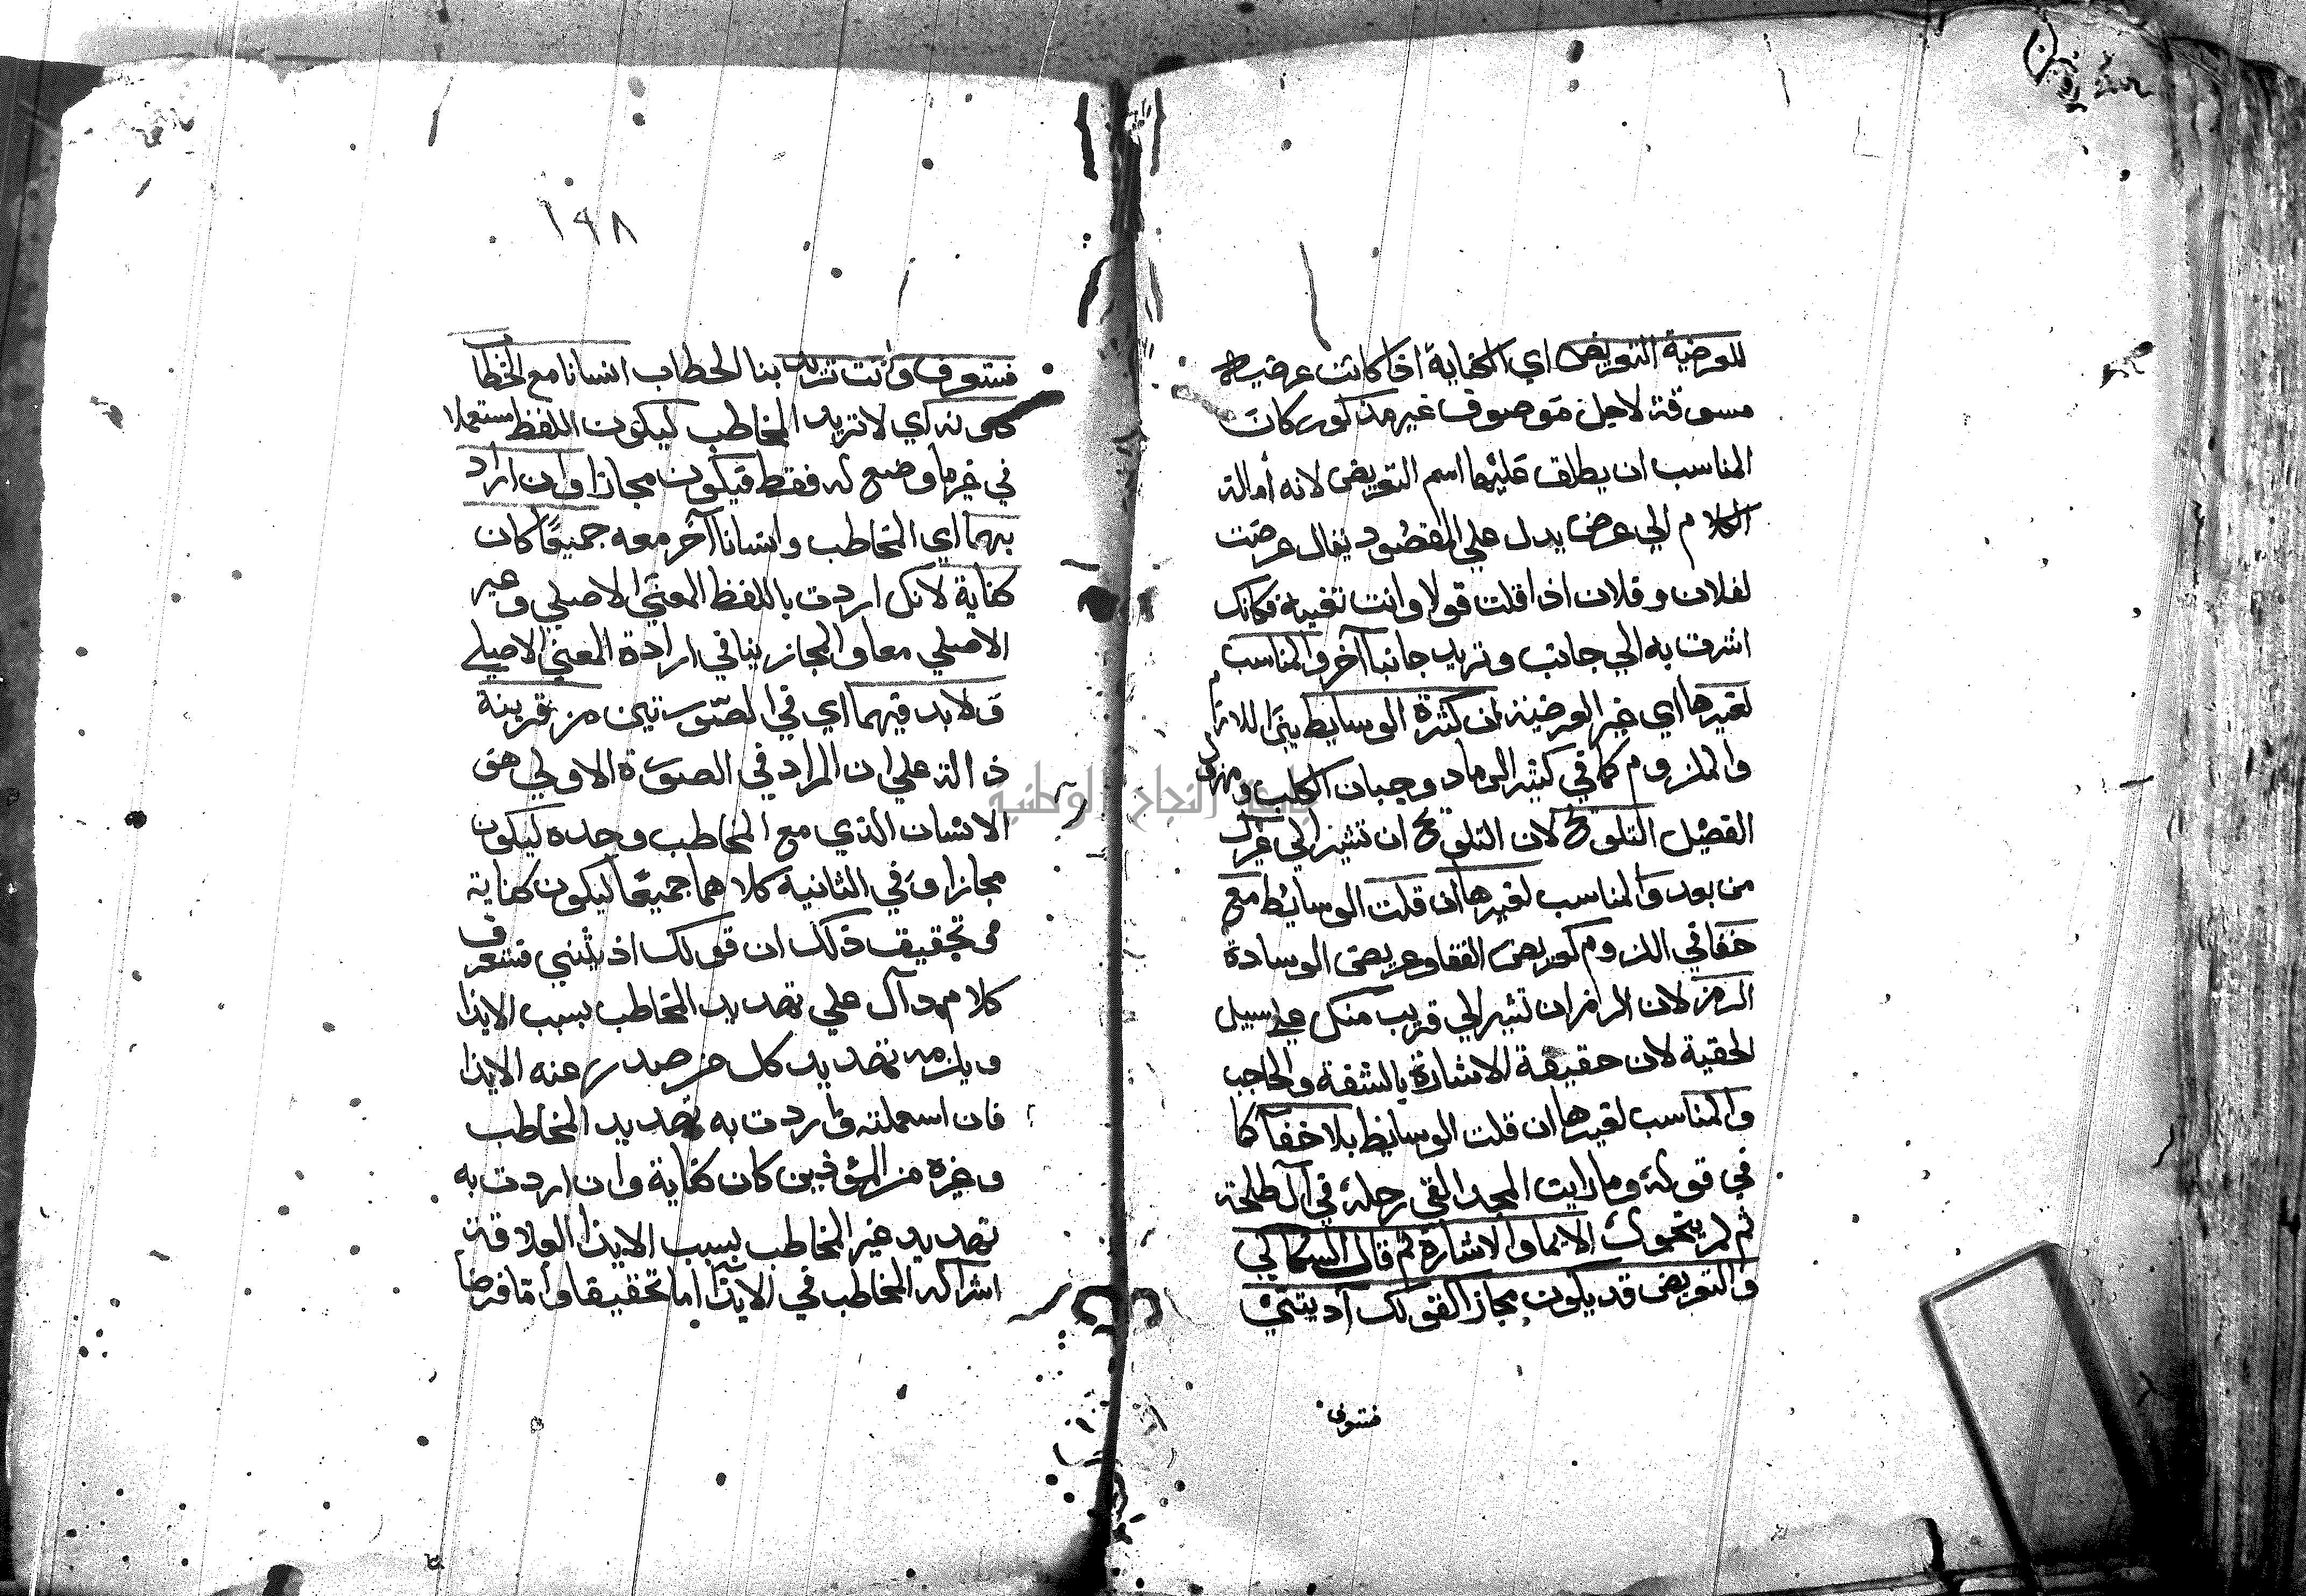 للعرضية التعريض اي الكناية اذا كانت عرضية
مسوقة لاجل موصوف غير مذكور كان
المناسب ان يطلق عليها اسم التعريض لانه أمالة
الكلام الي عرض يدل علي المقصود يقال عرضت
لفلان وفلان اذا قلت قولا وانت تعنيه فكانك
اشرت به الي جانب وتريد جانبا آخر والمناسب
لغيرها اي غير العرضية ان كثرة الوسايط بين اللازم
والملزوم كما في كثير الرماد وجبان الكلب ومهزول
الفصيل التلويح لان التلويح ان تشير الي غيرك
من بعد والمناسب لغيرها ان قلت الوسائط مع
خفا في اللزوم كعريض القفا وعريض الوسادة
الرمز لان الرمز ان تشير الي قريب منك علي سبيل
الخفية لان حقيقة الاشارة بالشفة والحاجب
والمناسب لغيرها ان قلت الوسائط بلا خفا كما
في قوله وما رايت المجد القي رحله في آل طلحة
ثم لم يتحول الايما والاشارة ثم قال السكاكي
والتعريض قد يكون مجازا لقولك آذيتني
فستعرف
١٩٨
فستعرف وانت تريد بنا الخطاب انسانا مع الخطا
دونه اي لا تريد المخاطب ليكون اللفظ مستعملا
في غير ما وضع له فقط فيكون مجازا وان اراد
بهما اي المخاطب وانسانا آخر معه جميعًا كان
كناية لانك اردت باللفظ المعني الاصلي وغير
الاصلي معا والمجاز ينافي ارادة المعني الاصلي
ولا بد فيهما اي في الصورتين من قرينة
دالة علي ان المراد في الصورة الاولي هو
الانسان الذي مع المخاطب وحده ليكون
مجازا وفي الثانية كلاهما جميعًا ليكون كناية
و تحقيق ذلك ان قولك اذيتني فستعرف
كلام دآل علي تهديد المخاطب بسبب الايذا
ويلزمه تهديد كل من صدر عنه الايذا
فان اسعملته واردت به تهديد المخاطب
وغيره من المؤذيين كان كناية وان اردت به
تهديد غير المخاطب بسبب الايذا العلاقة
اشراكه المخاطب في الايذا اما تحقيقا واما فرضا
جامعة النجاح الوطنية